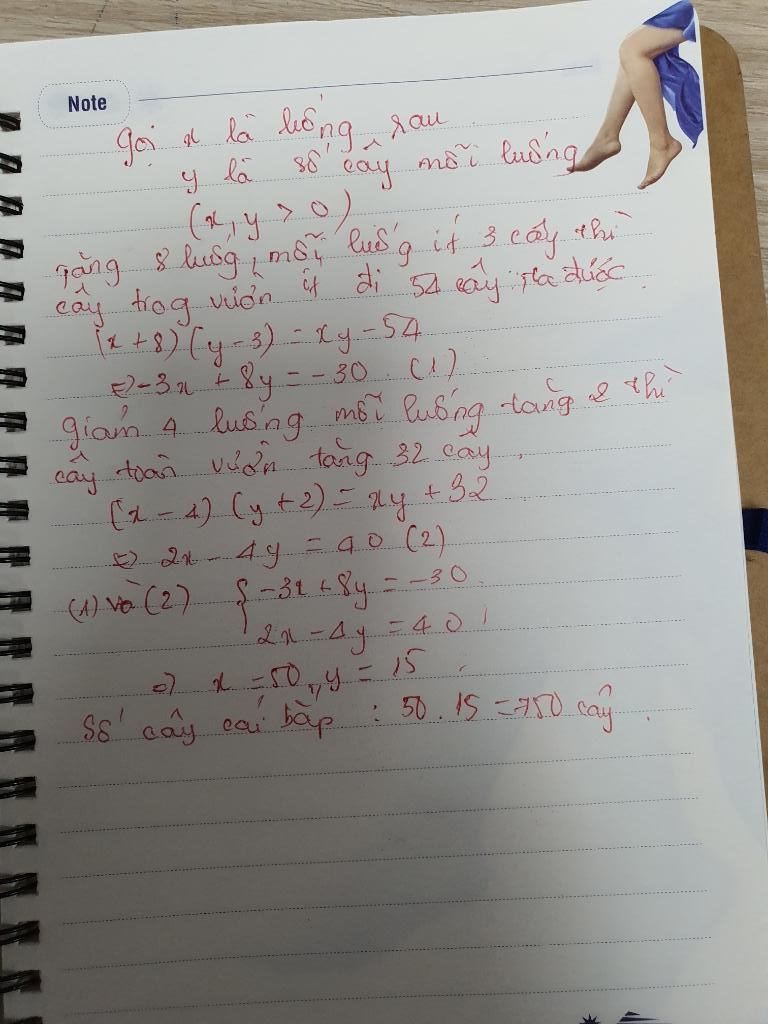 Note
Gọi x là luống rau
y là số cây mỗi luống
(x, y > 0)
Tăng 8 luống, mỗi luống ít 3 cây thì
cây trog vườn ít đi 54 cây ta được.
(x + 8) (y - 3) = xy - 54
⇔ -3x + 8y = -30 (1)
Giảm 4 luống mỗi luống tăng 2 thì
cây toàn vườn tăng 32 cây.
(x - 4) (y + 2) = xy + 32
⇔ 2x - 4y = 40 (2)
(1) và (2) { -3x + 8y = -30
2x - 4y = 40
⇒ x = 50, y = 15.
Số cây cải bắp : 50 . 15 = 750 cây.